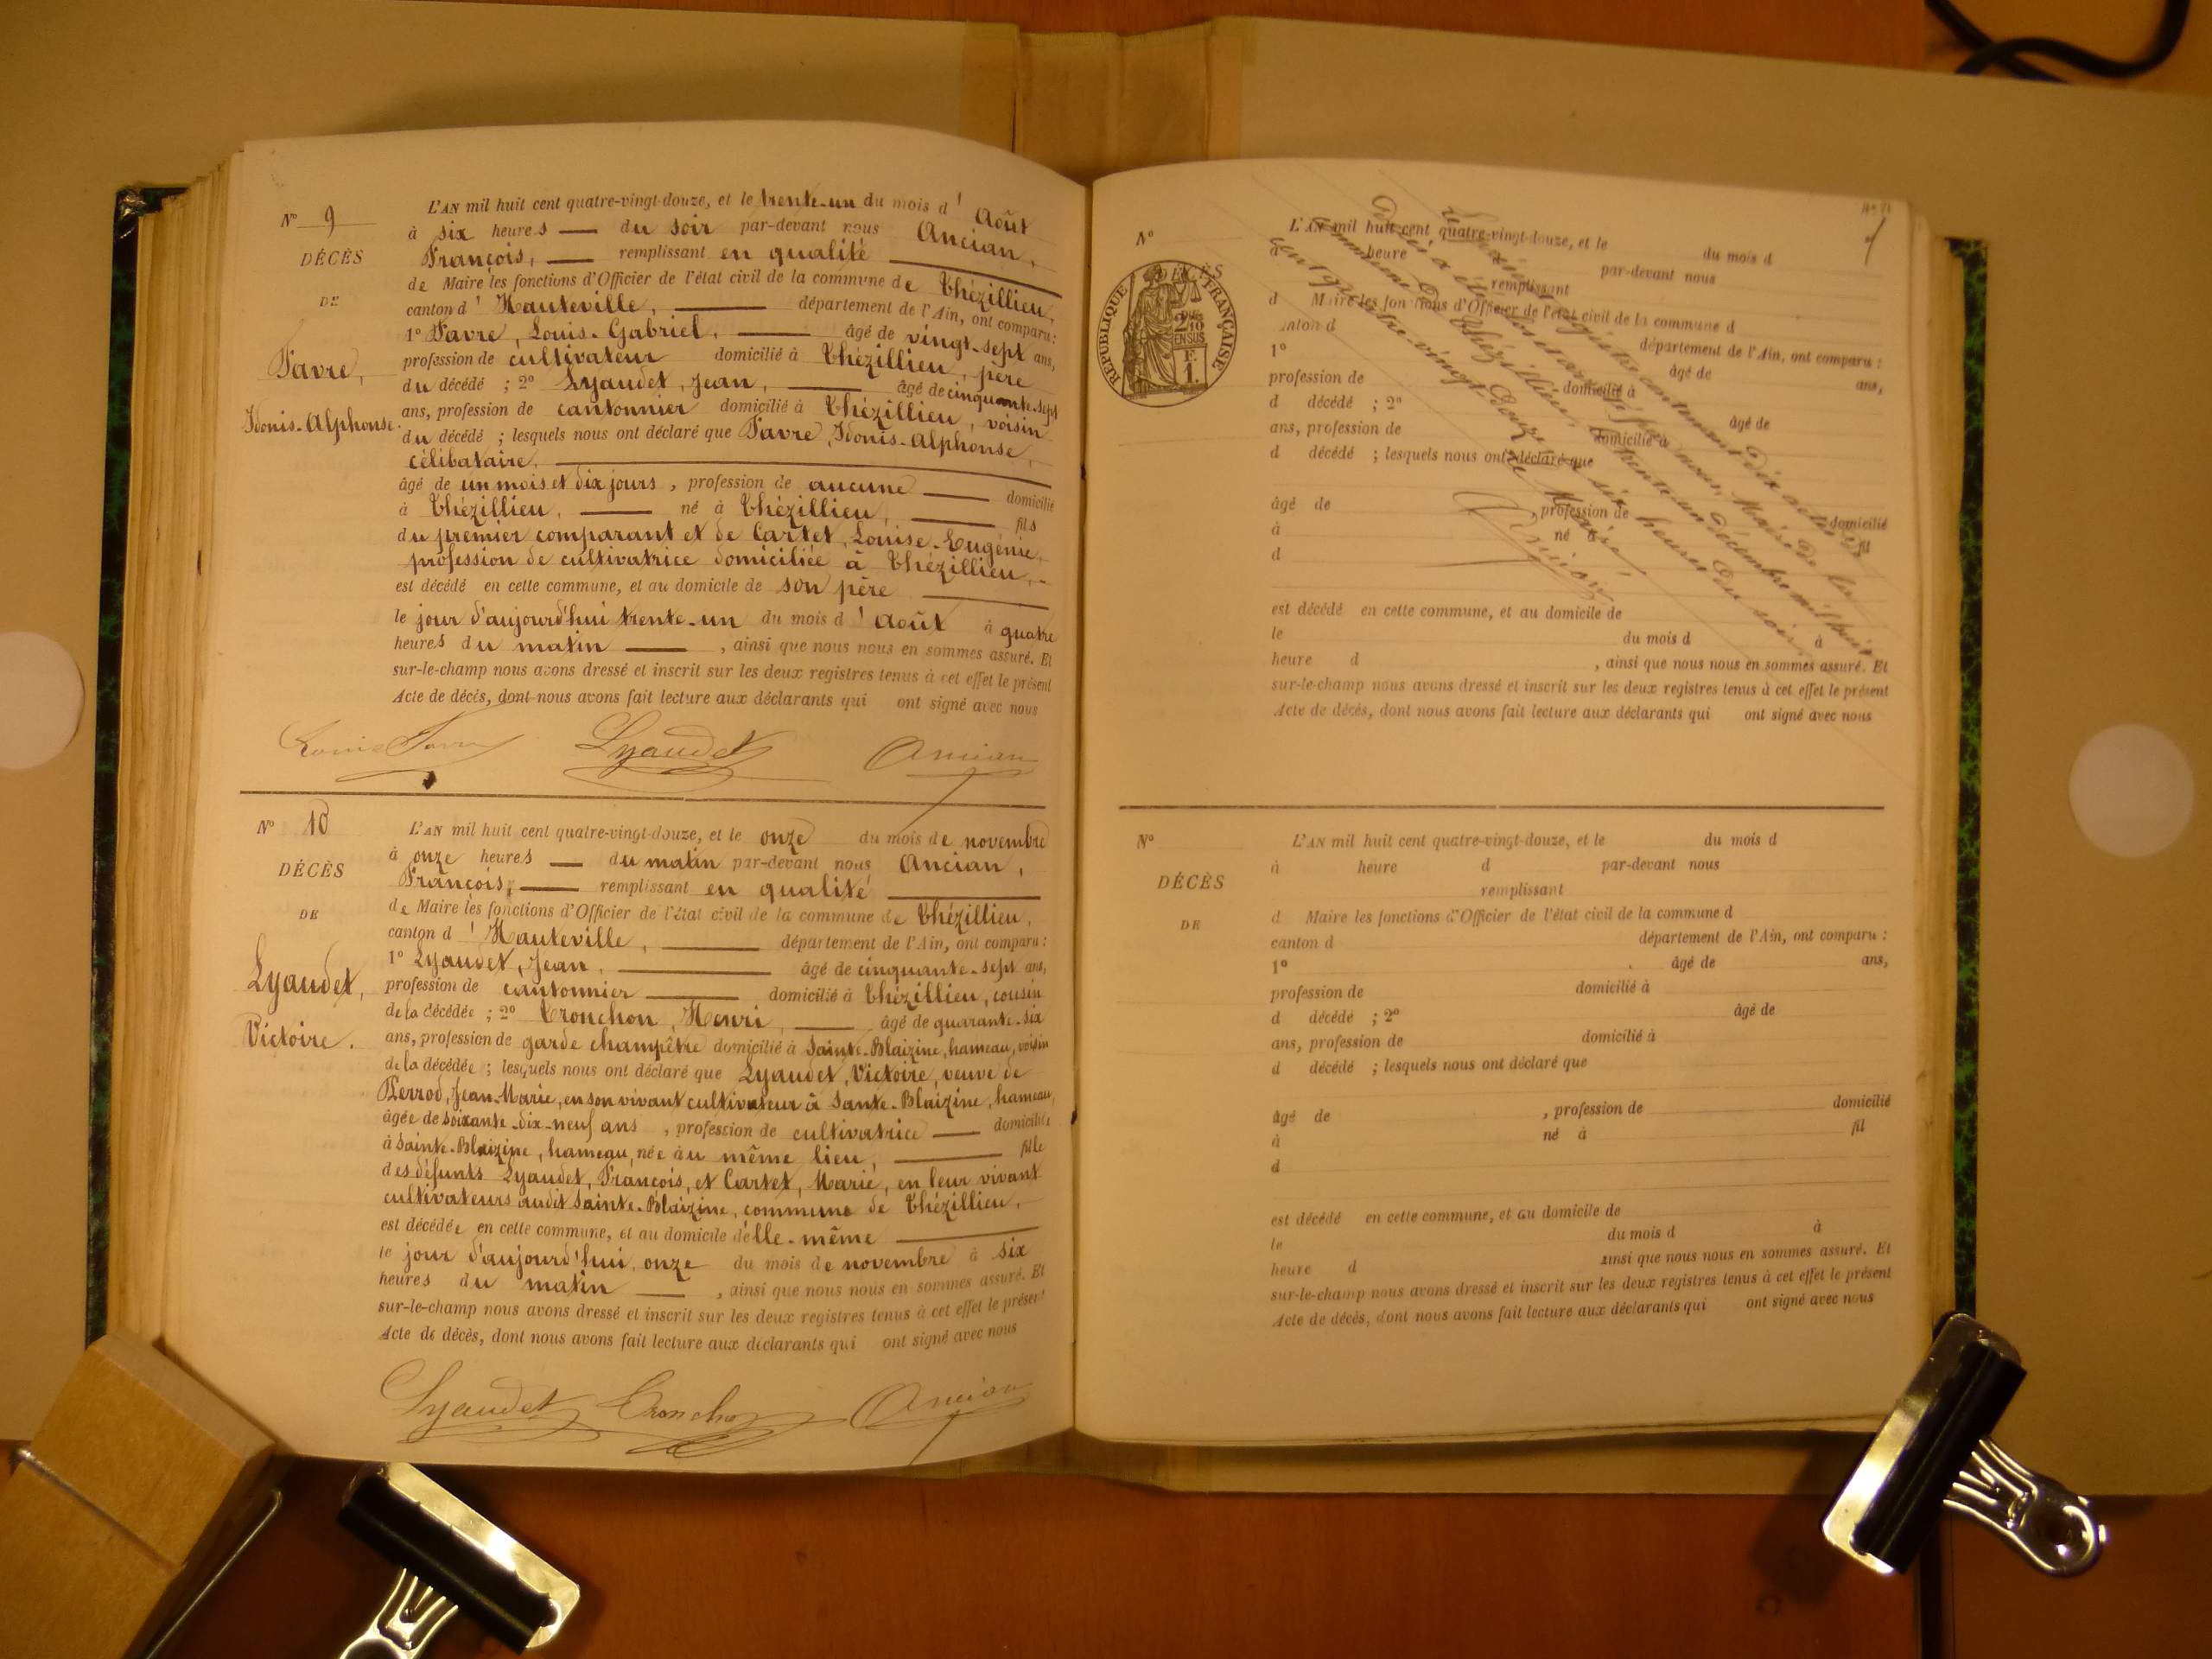 N° 9
DÉCÈS
DE
Favre,
Idonis-Alphonse.
L'AN mil huit cent quatre-vingt-douze, et le trente-un du mois d'Août
à six heures — du soir par-devant nous Ancian,
François, — remplissant en qualité
de Maire les fonctions d'Officier de l'état civil de la commune de Thézillieu,
canton d'Hauteville, — département de l'Ain, ont comparu :
1° Favre, Louis-Gabriel, — âgé de vingt-sept ans,
profession de cultivateur domicilié à Thézillieu, père
du décédé ; 2° Lyaudet, Jean, — âgé de cinquante-sept
ans, profession de cantonnier domicilié à Thézillieu, voisin
du décédé ; lesquels nous ont déclaré que Favre, Idonis-Alphonse,
célibataire,
âgé de un mois et dix jours, profession de aucune — domicilié
à Thézillieu, — né à Thézillieu, — fils
du premier comparant et de Cartet, Louise-Eugénie,
profession de cultivatrice domiciliée à Thézillieu,
est décédé en cette commune, et au domicile de son père
le jour d'aujourd'hui trente-un du mois d'Août à quatre
heures du matin — , ainsi que nous nous en sommes assuré. Et
sur-le-champ nous avons dressé et inscrit sur les deux registres tenus à cet effet le présent
Acte de décès, dont nous avons fait lecture aux déclarants qui ont signé avec nous
Louis Favre Lyaudet Ancian
N° 10
DÉCÈS
DE
Lyaudet,
Victoire.
L'AN mil huit cent quatre-vingt-douze, et le onze du mois de novembre
à onze heures — du matin par-devant nous Ancian,
François, — remplissant en qualité
de Maire les fonctions d'Officier de l'état civil de la commune de Thézillieu,
canton d'Hauteville, — département de l'Ain, ont comparu :
1° Lyaudet, Jean, — âgé de cinquante-sept ans,
profession de cantonnier — domicilié à Thézillieu, cousin
de la décédée ; 2° Tronchon, Henri, — âgé de quarante-six
ans, profession de garde champêtre domicilié à Sainte-Blaizine, hameau, voisin
de la décédée ; lesquels nous ont déclaré que Lyaudet, Victoire, veuve de
Perrod, Jean-Marie, en son vivant cultivateur à Sante-Blaizine, hameau,
âgée de soixante-dix-neuf ans , profession de cultivatrice — domiciliée
à Sainte-Blaizine, hameau, née au même lieu, — fille
des défunts Lyaudet, François, et Cartet, Marie, en leur vivant
cultivateurs audit Sainte-Blaizine, commune de Thézillieu,
est décédée en cette commune, et au domicile d'elle-même
le jour d'aujourd'hui, onze du mois de novembre à six
heures du matin — , ainsi que nous nous en sommes assuré. Et
sur-le-champ nous avons dressé et inscrit sur les deux registres tenus à cet effet le présent
Acte de décès, dont nous avons fait lecture aux déclarants qui ont signé avec nous
Lyaudet Tronchon Ancian
N°
DÉCÈS
RÉPUBLIQUE FRANÇAISE
2/10
EN SUS
F.
1.
L'AN mil huit cent quatre-vingt-douze, et le du mois d
à heure par-devant nous
remplissant
d Maire les fonctions d'Officier de l'état civil de la commune d
canton d département de l'Ain, ont comparu :
1° âgé de ans,
profession de domicilié à
d décédé ; 2° âgé de
ans, profession de domicilié à
d décédé ; lesquels nous ont déclaré que
âgé de , profession de domicilié
à né à fil
d
est décédé en cette commune, et au domicile de
le du mois d à
heure d , ainsi que nous nous en sommes assuré. Et
sur-le-champ nous avons dressé et inscrit sur les deux registres tenus à cet effet le présent
Acte de décès, dont nous avons fait lecture aux déclarants qui ont signé avec nous
Le registre contenant dix actes de
décès a été clos et arrêté par nous, Maire de la
commune de Thézillieu, le trente-un décembre mil huit
cent quatre-vingt-douze, à six heures du soir.
Le Maire,
Ancian
N°
DÉCÈS
DE
L'AN mil huit cent quatre-vingt-douze, et le du mois d
à heure d par-devant nous
remplissant
d Maire les fonctions d'Officier de l'état civil de la commune d
canton d département de l'Ain, ont comparu :
1° âgé de ans,
profession de domicilié à
d décédé ; 2° âgé de
ans, profession de domicilié à
d décédé ; lesquels nous ont déclaré que
âgé de , profession de domicilié
à né à fil
d
est décédé en cette commune, et au domicile de
le du mois d à
heure d ainsi que nous nous en sommes assuré. Et
sur-le-champ nous avons dressé et inscrit sur les deux registres tenus à cet effet le présent
Acte de décès, dont nous avons fait lecture aux déclarants qui ont signé avec nous